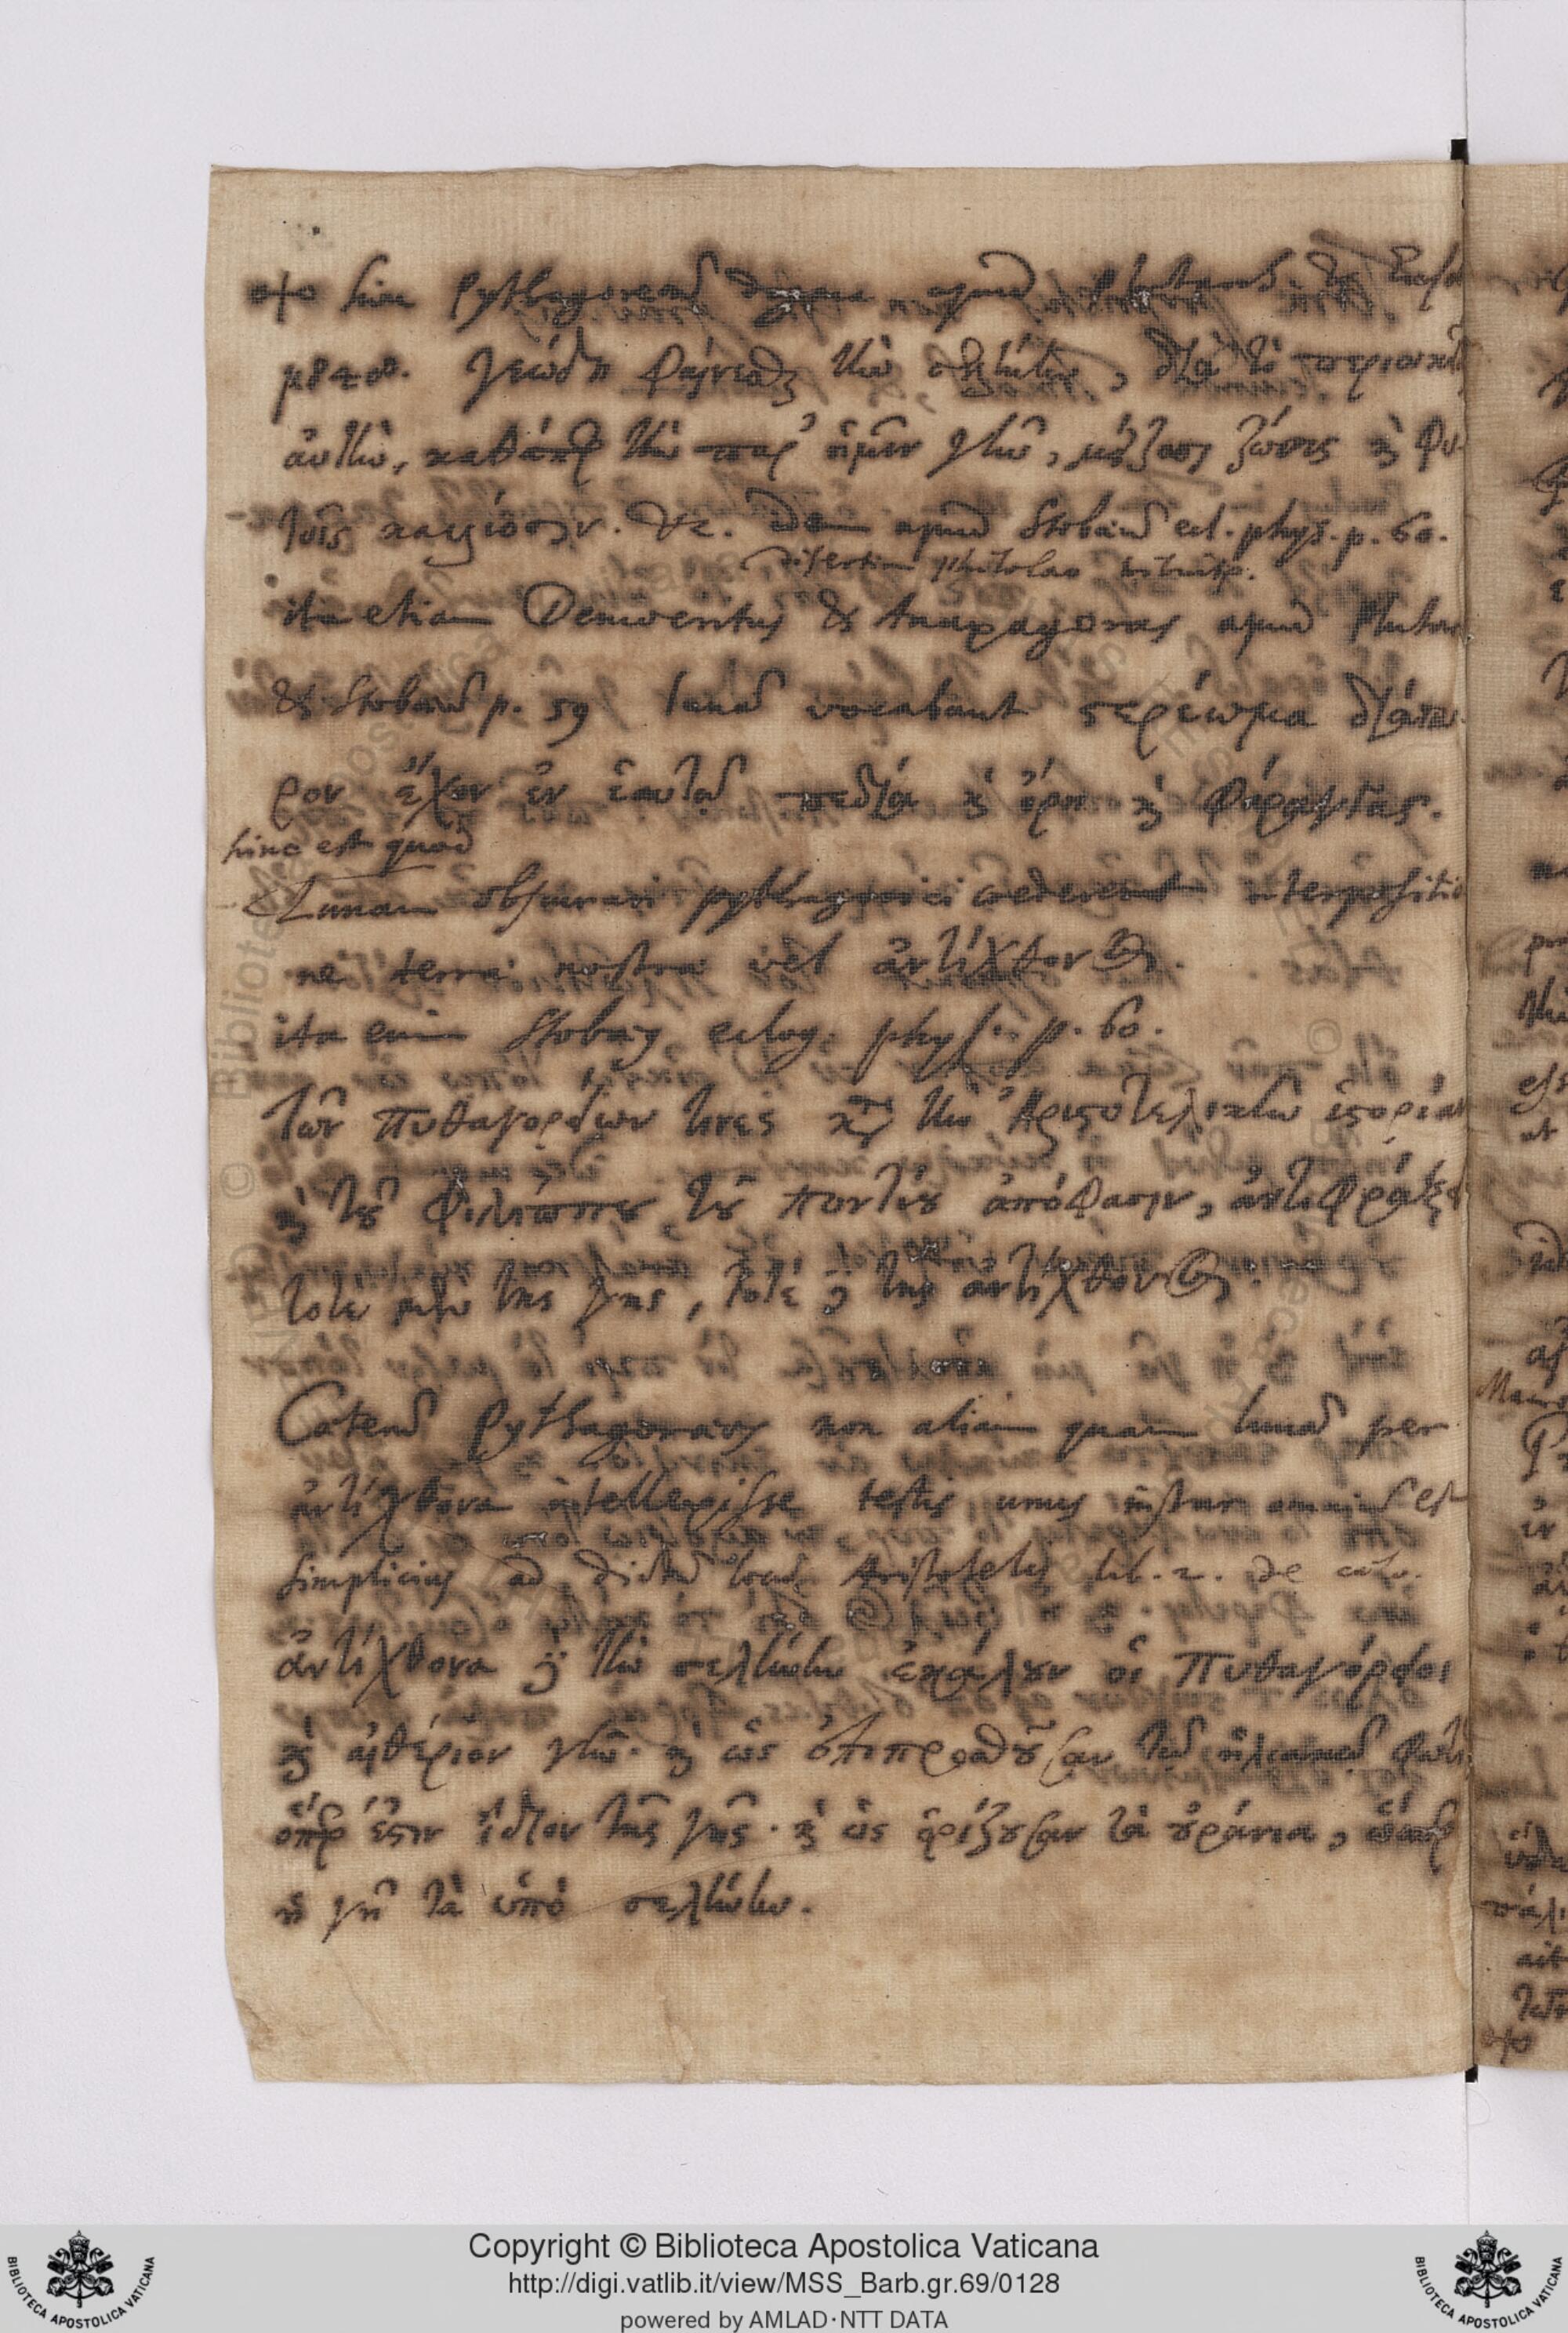 hinc Pythagoreorum dogma apud Plutarchum &
γεώδη φαίνεσθαι τὴν σελήνην, διὰ τὸ περιοικεῖ
αὐτὴν, καθάπερ τὴν παρ' ἡμῖν γῆν, μείζοσι ζώοις καὶ φυ-
τοῖς καλλίοσιν. &c. Idem apud Stobaeum ecl. phys. p. 60.
disertim Philolao
ita etiam Democritus & Anaxagoras apud Plutar
& Stobaeum p. 59 lunam vocabant στερέωμα διάπυ-
ρον ἔχον ἐν ἑαυτῷ πεδία καὶ ὄρη καὶ φάραγγας.
hinc est quod
Lunam obscurari pythagorici crediderunt interpositio
ne terrae nostrae vel ἀντίχθονος.
ita enim Stobaeus eclog. phys. p. 60.
Τῶν πυθαγορείων τινὲς κατὰ τὴν Ἀριστοτελικὴν ἱστορίαν
καὶ τοῦ Φιλίππου τοῦ Ποντίου ἀπόφασιν, ἀντιφράξει
τοτὲ μὲν τῆς γῆς, τοτὲ δὲ τῆς ἀντίχθονος.
Caeterum Pythagoraeos non aliam quam lunam per
ἀντίχθονα intellexisse testis unus instar omnium est
Simplicius ad dictum locum Aristotelis lib. 2. de caelo.
ἀντίχθονα δὲ τὴν σελήνην ἐκάλουν οἱ Πυθαγόρειοι
καὶ αἰθέριον γῆν. καὶ ὡς ἐπιπροσθοῦσαν τῷ ἡλιακῷ φωτὶ
ὅπερ ἐστὶν ἴδιον τῆς γῆς. καὶ ὡς ὁρίζουσαν τὰ οὐράνια, ὥσπερ
ἡ γῆ τὰ ὑπὸ σελήνην.
Copyright © Biblioteca Apostolica Vaticana
http://digi.vatlib.it/view/MSS_Barb.gr.69/0128
powered by AMLAD·NTT DATA